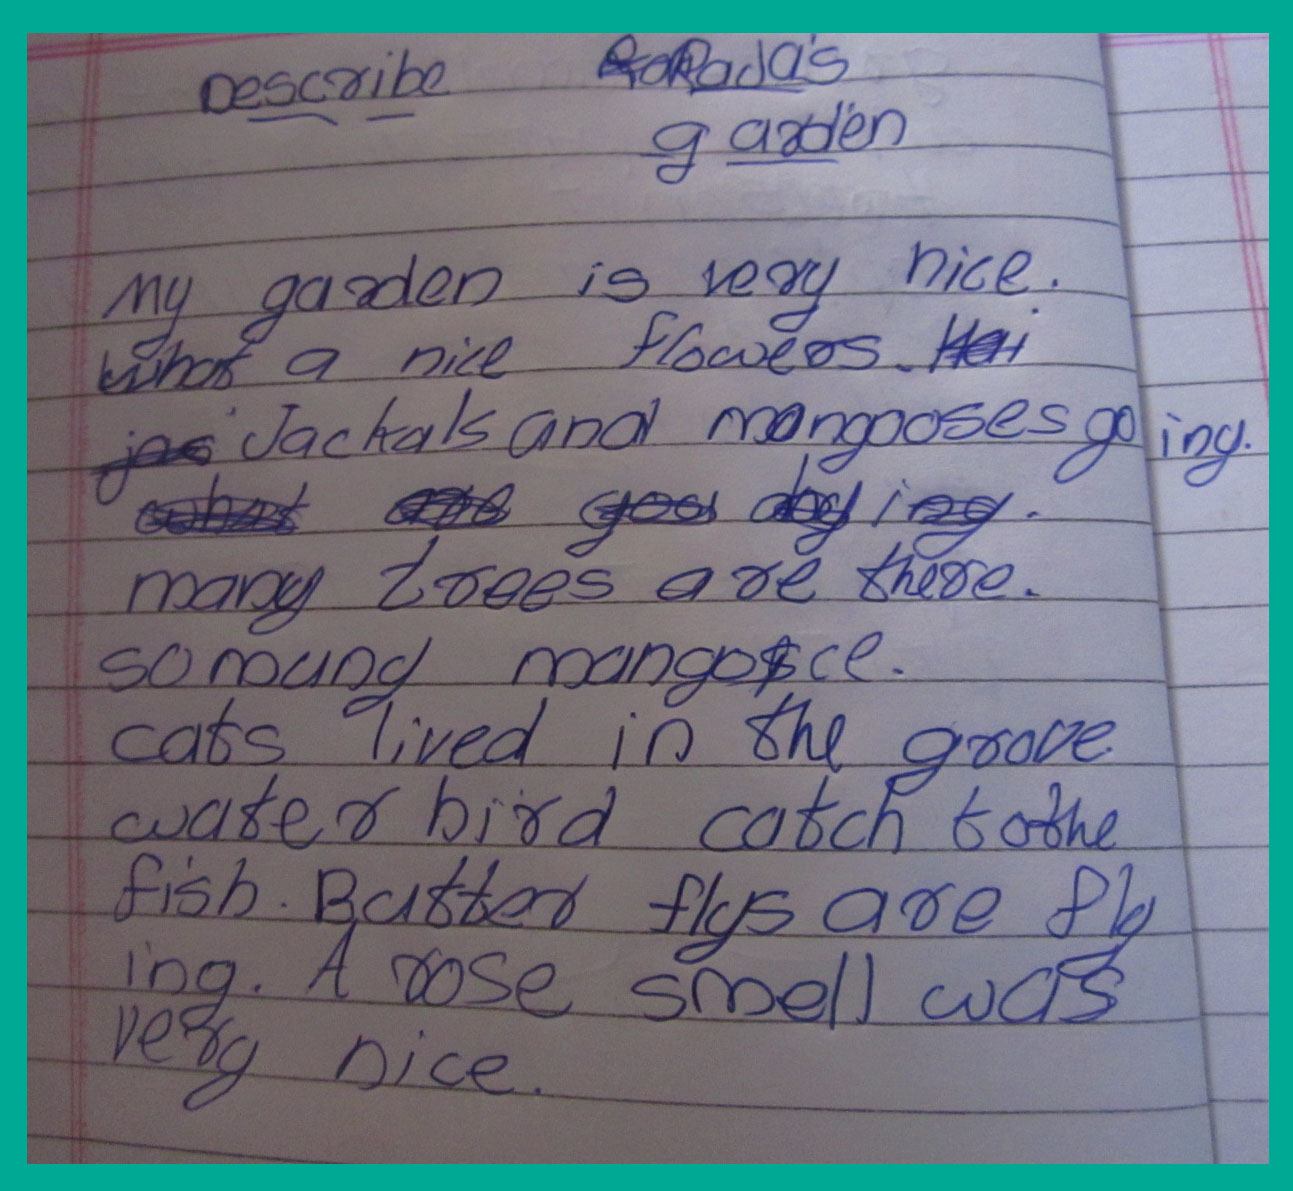 Describe Radas
garden
My garden is very nice.
what a nice flowers.
Jackals and mongooses going.
many trees are there.
so
cats lived in the grove
water bird catch to the
fish. Butter flys are fly
ing. A rose smell was
very nice.